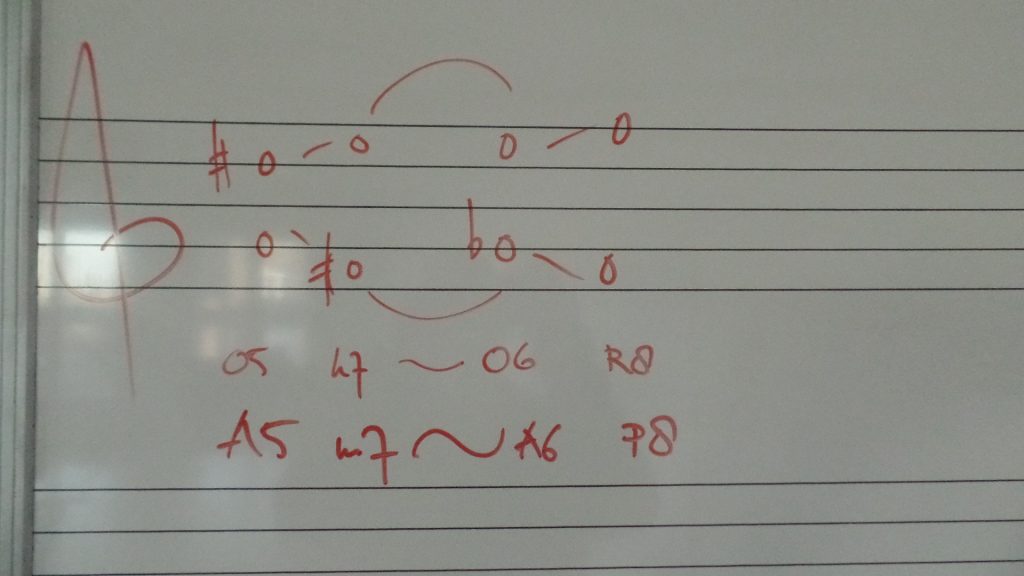 05 k7 ~ 06 R8
A5 m7 ~ A6 P8